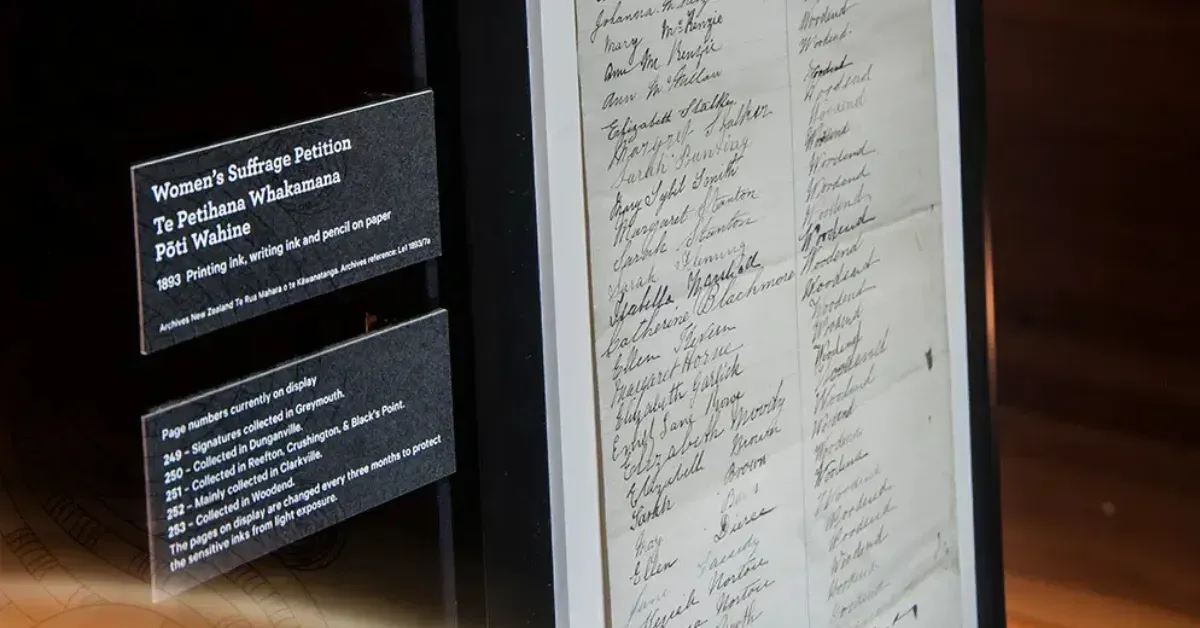 Women's Suffrage Petition
Te Petihana Whakamana
Pōti Wahine
1893 Printing ink, writing ink and pencil on paper
Archives New Zealand Te Rua Mahara o te Kāwanatanga. Archives reference: LeI 1893/7a
Page numbers currently on display
249 – Signatures collected in Greymouth.
250 – Collected in Dunganville.
251 – Collected in Reefton, Crushington, & Black's Point.
252 – Mainly collected in Clarkville.
253 – Collected in Woodend.
The pages on display are changed every three months to protect
the sensitive inks from light exposure.
Johanna Woodend
Mary McKenzie Woodend
Ann McKenzie Woodend
Ann McMillan Woodend
Elizabeth Stalker Woodend
Margrt Stalker Woodend
Sarah Bunting Woodend
Mary Sybil Smith Woodend
Margaret Stanton Woodend
Sarah Stanton Woodend
Sarah Fleming Woodend
Isabella Marshall Woodend
Catherine Blachmore Woodend
Ellen Woodend
Margaret Horne Woodend
Elizabeth Garlick Woodend
Jane Rowe Woodend
Elizabeth Moody Woodend
Elizabeth Brown Woodend
Sarah Brown Woodend
May Woodend
Ellen Pierce Woodend
Jane Cassidy Woodend
Norton Woodend
Norton Woodend